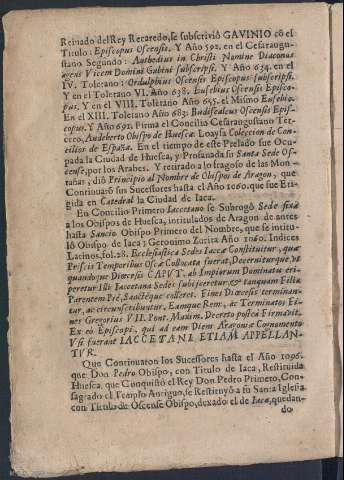 Reinado del Rey Recaredo, se subscrivió GAVINIO cō el
Titulo: Episcopus Oscensis. Y Año 592. en el Cesaraugus-
tano Segundo: Anthedius in Christi Nomine Diaconus
agens Vicem Domini Gabini subscripsi. Y Año 634. en el
IV. Toletano: Ordulphus Oscensis Episcopus subscripsi.
Y en el Toletano VI. Año 638. Eusebius Oscensis Episco-
pus. Y en el VIII. Toletano Año 645. el Mismo Eusebio.
En el XIII. Toletano Año 683. Budisealcus Oscensis Epis-
copus. Y Año 691. Firma el Concilio Cesaraugustano Ter-
cero, Audeberto Obispo de Huesca. Loaysa Coleccion de Con-
cilios de España. En el tiempo de este Prelado fue Ocu-
pada la Ciudad de Huesca, y Profanada su Santa Sede Os-
cense, por los Arabes. Y retirado a lo fragoso de las Mon-
tañas, dió Principio al Nombre de Obispo de Aragon, que
Continuarō sus Sucessores hasta el Año 1060. que fue Eri-
gida en Catedral la Ciudad de Iaca.
En Concilio Primero Iaccetano se Subrogò Sede fixa
a los Obispos de Huesca, intitulados de Aragon de antes
hasta Sancio Obispo Primero del Nombre, que se intitu-
lò Obispo de Iaca; Geronimo Zurita Año 1060. Indices
Latinos, fol. 28. Ecclesiastica Sedes Iaccæ Constituitur, quæ
Priscis Temporibus Oscæ Collocata fuerat, Decerniturque, ut
quandoque Diœcesis CAPUT. ab Impiorum Dominatu eri-
peretur Illi Iaccetana Sedes subijceretur, & tanquam Filia
Parentem Piè, Sanctèque colleret. Fines Diœcesis terminan-
tur, ac circunscribuntur. Eamque Rem, ac Terminatos Fi-
nes Gregorius VII. Pont. Maxim. Decreto postea Firmavit.
Ex eò Episcopi, qui ad eam Diem Aragoniæ Cognomento
Vsi fuerant IACCETANI ETIAM APPELLAN-
TVR.
Que Continuaron los Sucessores hasta el Año 1096.
que Don Pedro Obispo, con Titulo de Iaca, Restituida
Huesca, que Conquistó el Rey Don Pedro Primero, Con-
sagrado el Templo Antiguo, se Restituyò a su Santa Iglesia
con Titulo de Oscense Obispo, dexado el de Iaca, quedan-
do